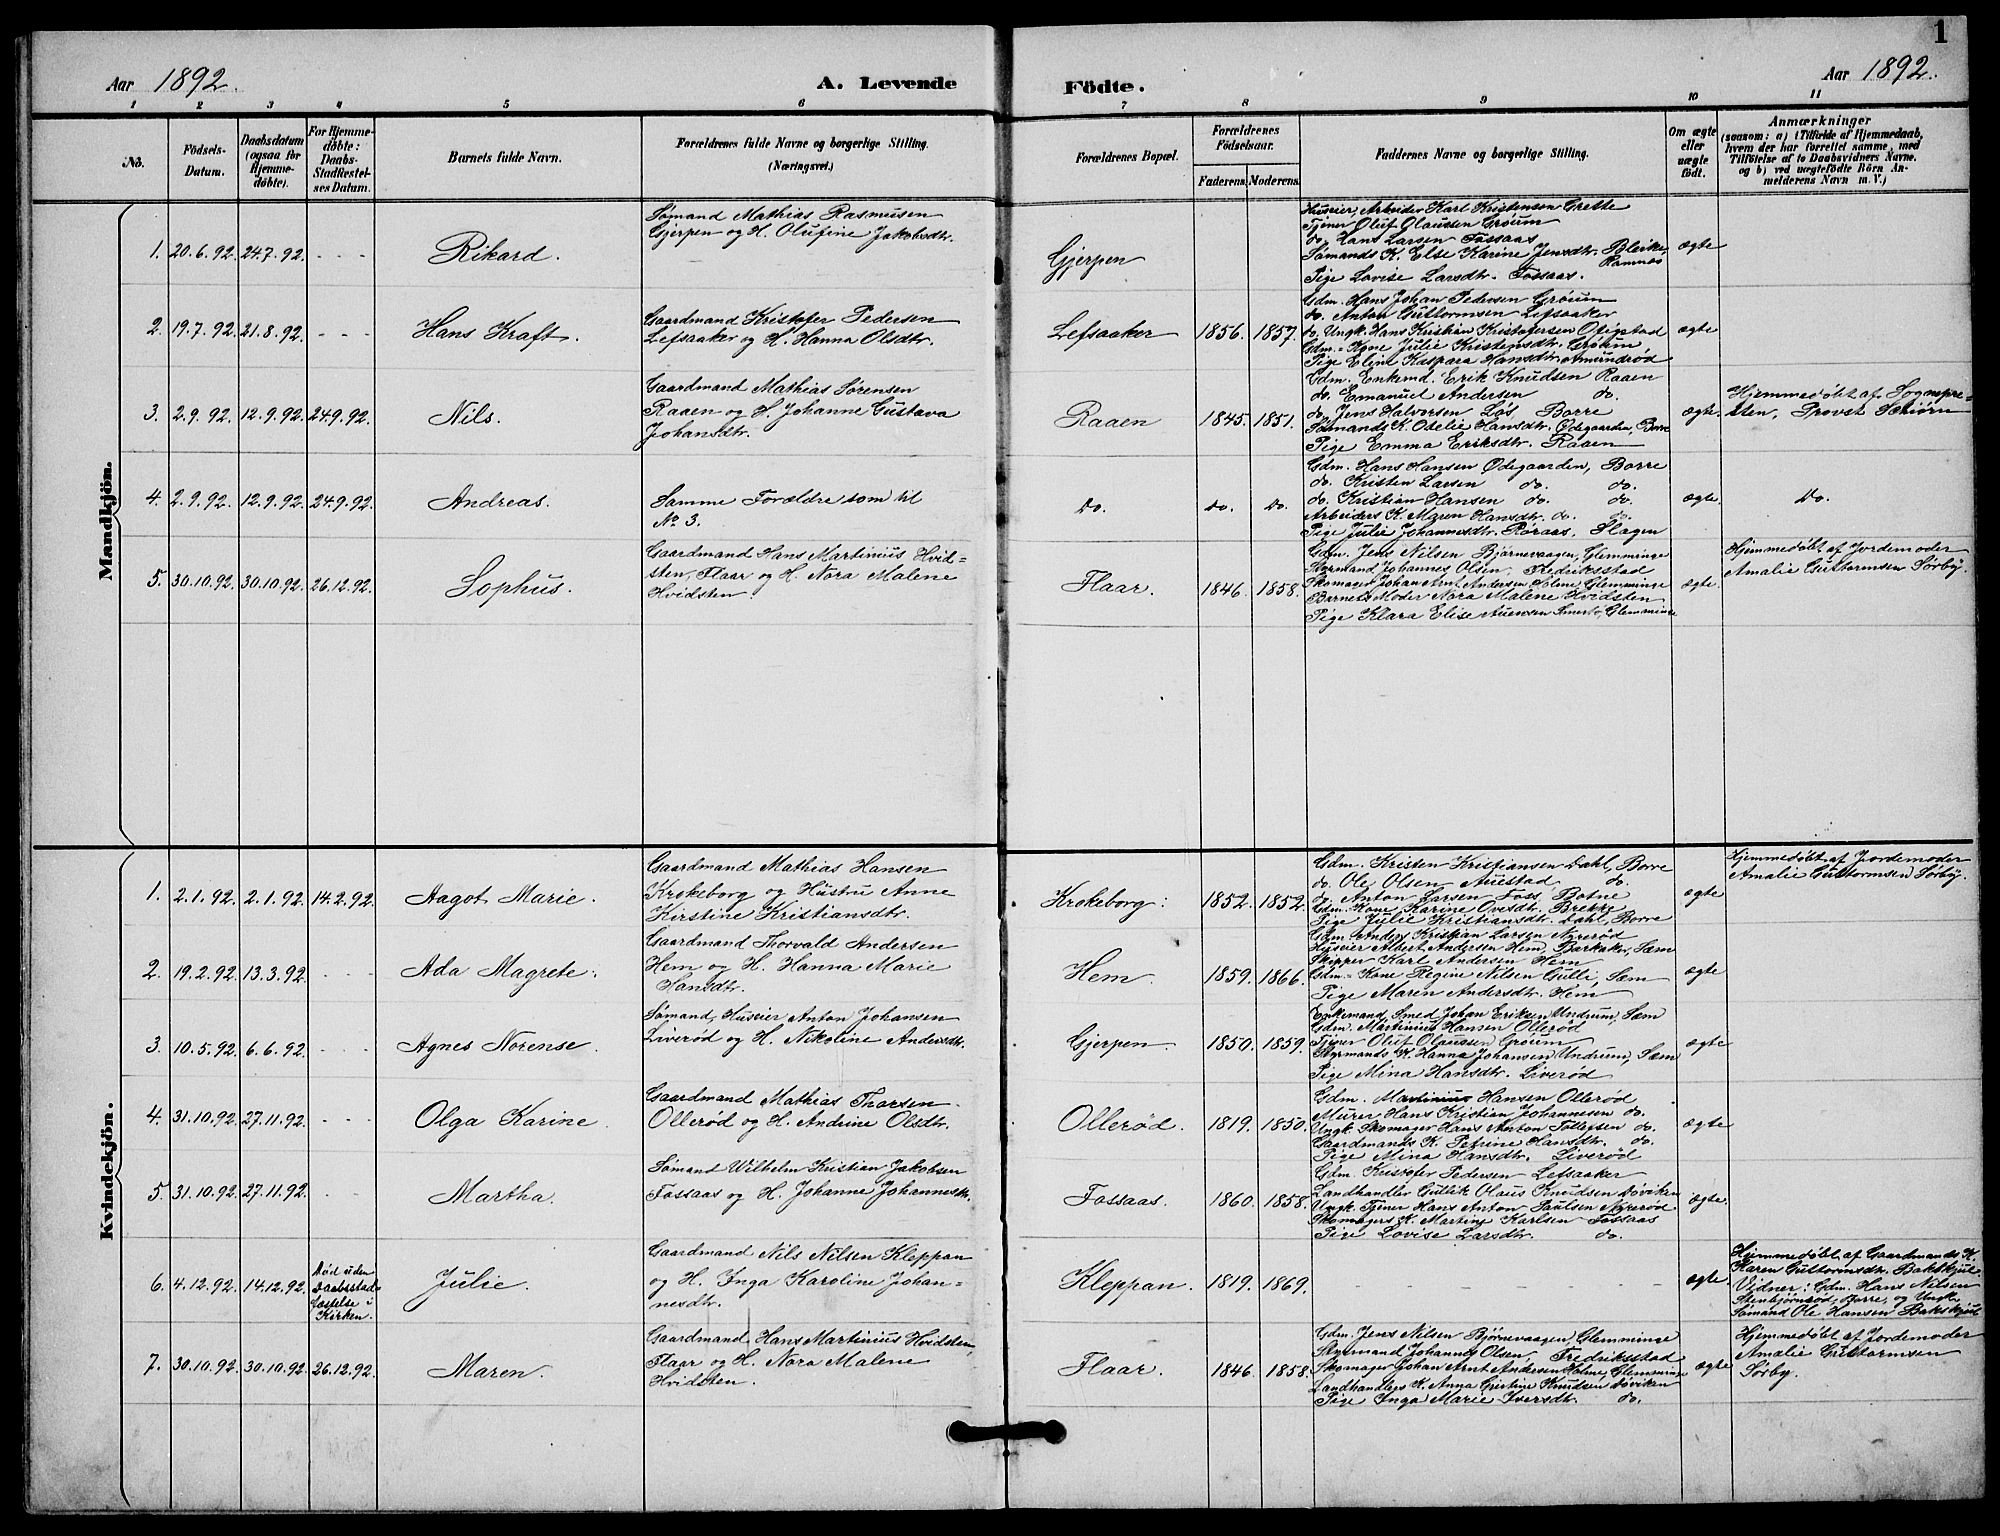 1
Aar 1892.
A. Levende
Födte.
Aar 1892.
1 2 3 4 5 6 7 8 9 10 11
No.
Födsels-
Datum.
Daabsdatum
(ogsaa for
Hjemme-
döbte).
For Hjemme-
döbte:
Daabs-
Stadfæstel-
ses Datum.
Barnets fulde Navn.
Forældrenes fulde Navne og borgerlige Stilling.
(Næringsvei.)
Forældrenes Bopæl.
Forældrenes
Födselsaar.
Faderens. Moderens.
Faddernes Navne og borgerlige Stilling.
Om ægte
eller
uægte
födt.
Anmærkninger
(saasom: a) i Tilfælde af Hjemmedaab,
hvem der har forrettet samme, med
Tilföielse af to Daabsvidners Navne.
og b) ved uægtefödte Börn An-
melderens Navn m. V.)
Mandkjön.
1. 20.6.92. 24.7.92. - - -
Rikard.
Sømand Mathias Rasmusen
Gjerpen og H. Olufine Jakobsdtr.
Gjerpen
Huseier, Arbeider Karl Kristensen Grette
Tjener Oluf Olaussen Grøum
do. Hans Larsen Fossaas
Sømands K. Else Karine Jensdtr. Bleike,
Ramnæs
Pige Lovise Larsdtr. Fossaas.
ægte
2. 19.7.92. 21.8.92. - - -
Hans Kraft.
Gaardmand Kristofer Pedersen
Lefsaaker og H. Hanna Olsdtr.
Lefsaaker
1856. 1857.
Gdm. Hans Johan Pedersen Grøum
do. Anton Guttormsen Lefsaaker
do. Ungk. Hans Kristian Kristofersen Ofigstad
Gdm.=Kone Julie Kristensdtr. Grøum
Pige Eline Kaspara Hansdtr. Amundrød
ægte
3. 2.9.92. 12.9.92. 24.9.92.
Nils.
Gaardmand Mathias Sørensen
Raaen og H. Johanne Gustava
Johansdtr.
Raaen
1845. 1851.
Gdm. Enkemd. Erik Knudsen Raaen
do. Emanuel Andersen do.
do. Jens Halvorsen Løs Borre
Sømands K. Otelie Hansdtr. Ødegaarden, Borre
Pige Emma Eriksdtr. Raaen
ægte.
Hjemmedøbt af Sognepre-
sten, Provst Schiørn
4. 2.9.92. 12.9.92. 24.9.92.
Andreas.
Samme Forældre som til
No 3.
Do. Do. Do.
Gdm. Hans Hansen Ødegaarden, Borre
do. Kristen Larsen do. do.
do. Kristian Hansen do. do.
Arbeiders K. Maren Hansdtr. do. do.
Pige Julie Johannesdtr. Røraas, Slagen
ægte.
Do.
5. 30.10.92. 30.10.92. 26.12.92.
Sophus.
Gaardmand Hans Martinius Hvid=
sten, Flaar og H. Nora Malene
Hvidsten
Flaar.
1846. 1858.
Gdm. Jens Nilsen Bjørnevaagen, Glemminge
Styrmand Johannes Olsen, Fredriksstad
Skomager Johan Arnt Andersen Holme, Glemminge
Barnets Moder Nora Malene Hvidsten
Pige Klara Elise Auensen Smertø, Glemminge
ægte.
Hjemmedøbt af Jordemoder
Amalie Guttormsen Sørby.
Kvindekjön.
1. 2.1.92. 2.1.92. 14.2.92.
Aagot Marie.
Gaardmand Mathias Hansen
Krokeborg og Hustru Anne
Kirstine Kristiansdtr.
Krokeborg:
1852. 1852.
Gdm. Kristen Kristiansen Dahl, Borre
do. Ole Olsen Auestad do.
do. Anton Larsen Foss, Botne
Gdm. Kone Karine Ovesdtr. Brekke
Pige Julie Kristiansdtr. Dahl, Borre
ægte
Hjemmedøbt af Jordemoder
Amalie Guttormsen Sørby.
2. 19.2.92. 13.3.92. - - -
Ada Magrete.
Gaardmand Thorvald Andersen
Hem og H. Hanna Marie
Hansdtr.
Hem.
1859. 1866.
Gdm. Anders Kristian Larsen Nyrerød
Huseier Albert Andersen Hem, Barkaker, Sæm
Skipper Karl Andersen Hem
Gdm.=Kone Regine Nilsen Gulli, Sæm
Pige Maren Andersdtr. Hem
ægte
3. 10.5.92. 6.6.92. - - -
Agnes Norense.
Sømand, Huseier Anton Johansen
Liverød og H. Nikoline Andersdtr.
Gjerpen.
1850. 1859.
Enkemand, Smed Johan Eriksen Undrum, Sæm
Gdm. Martinius Hansen Ollerød
Tjener Oluf Olaussen Grøum
Styrmands K. Hanna Johansen Undrum, Sæm
Pige Mina Hansdtr. Liverød
ægte
4. 31.10.92. 27.11.92. - - -
Olga Karine.
Gaardmand Mathias Thorsen
Ollerød og H. Andrine Olsdtr.
Ollerød.
1819. 1850.
Gdm. Martinius Hansen Ollerød
Murer Hans Kristian Johannesen do.
Ungk. Skomager Hans Anton Tollefsen do.
Gaardmands K. Petrine Hansdtr. do.
Pige Mina Hansdtr. Liverød
ægte
5. 31.10.92. 27.11.92. - -
Martha.
Sømand Wilhelm Kristian Jakobsen
Fossaas og H. Johanne Johannesdtr.
Fossaas.
1860. 1858.
Gdm. Kristofer Pedersen Lefsaaker
Landhandler Gullik Olaus Knudsen Døviken
Ungk. Tjener Hans Anton Paulsen Nyrerød
Skomagers K. Martine Karlsen Fossaas
Pige Lovise Larsdtr. do.
ægte.
6. 4.12.92. 14.12.92.
Død uden
Daabsstad-
fæstelse i
Kirken.
Julie.
Gaardmand Nils Nilsen Kleppan
og H. Inga Karoline Johan=
nesdtr.
Kleppan.
1819. 1869.
ægte.
Hjemmedøbt af Gaardmands K.
Karen Guttormsdtr. Bakskjul.
Vidner: Gdm. Hans Nilsen
Stenbjørnrød, Borre, og Ungk.
Sømand Ole Hansen Bakskjul
7. 30.10.92. 30.10.92. 26.12.92.
Maren.
Gaardmand Hans Martinius Hvidsten,
Flaar og H. Nora Malene
Hvidsten.
Flaar.
1846. 1858.
Gdm. Jens Nilsen Bjørnevaagen, Glemminge
Styrmand Johannes Olsen. Fredriksstad
Skomager Johan Arnt Andersen Holme, Glemminge
Landhandlers K. Anna Gristine Knudsen Døviken
Pige Inga Marie Iversdtr. do.
ægte
Hjemmedøbt af Jordemoder
Amalie Guttormsen
Sørby.